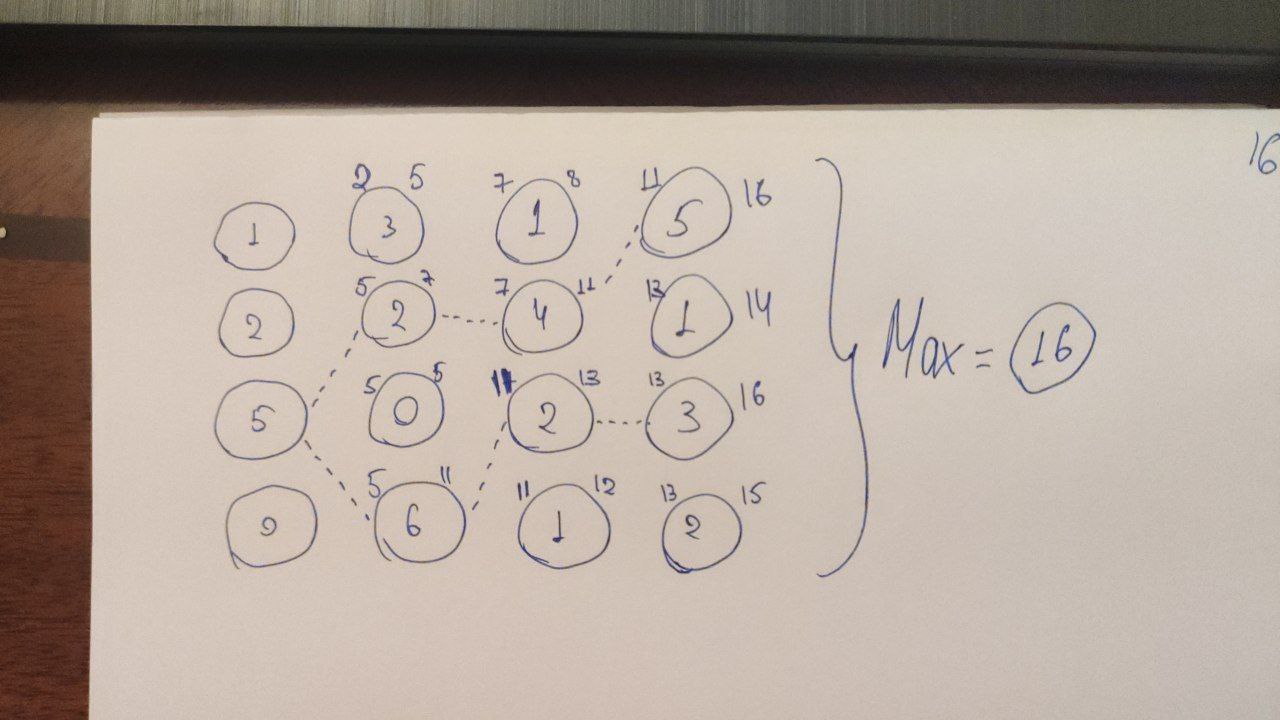 16
2 5 7 8 11
1 3 1 5 16
5 7 7 11 13
2 2 4 1 14 Max = 16
5 5 11 13 13
5 0 2 3 16
5 11 11 12 13 15
6 1 2